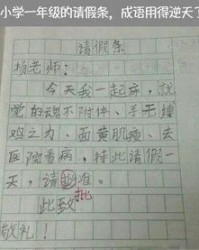 小学一年级的请假条，成语用得逆天了
请假条
杨老师：
今天我一起床，就
觉的魂不附体、手无缚
鸡之力、面黄肌瘦、去
医院看病，特此请假一
天，请准。
批
此致
敬礼！